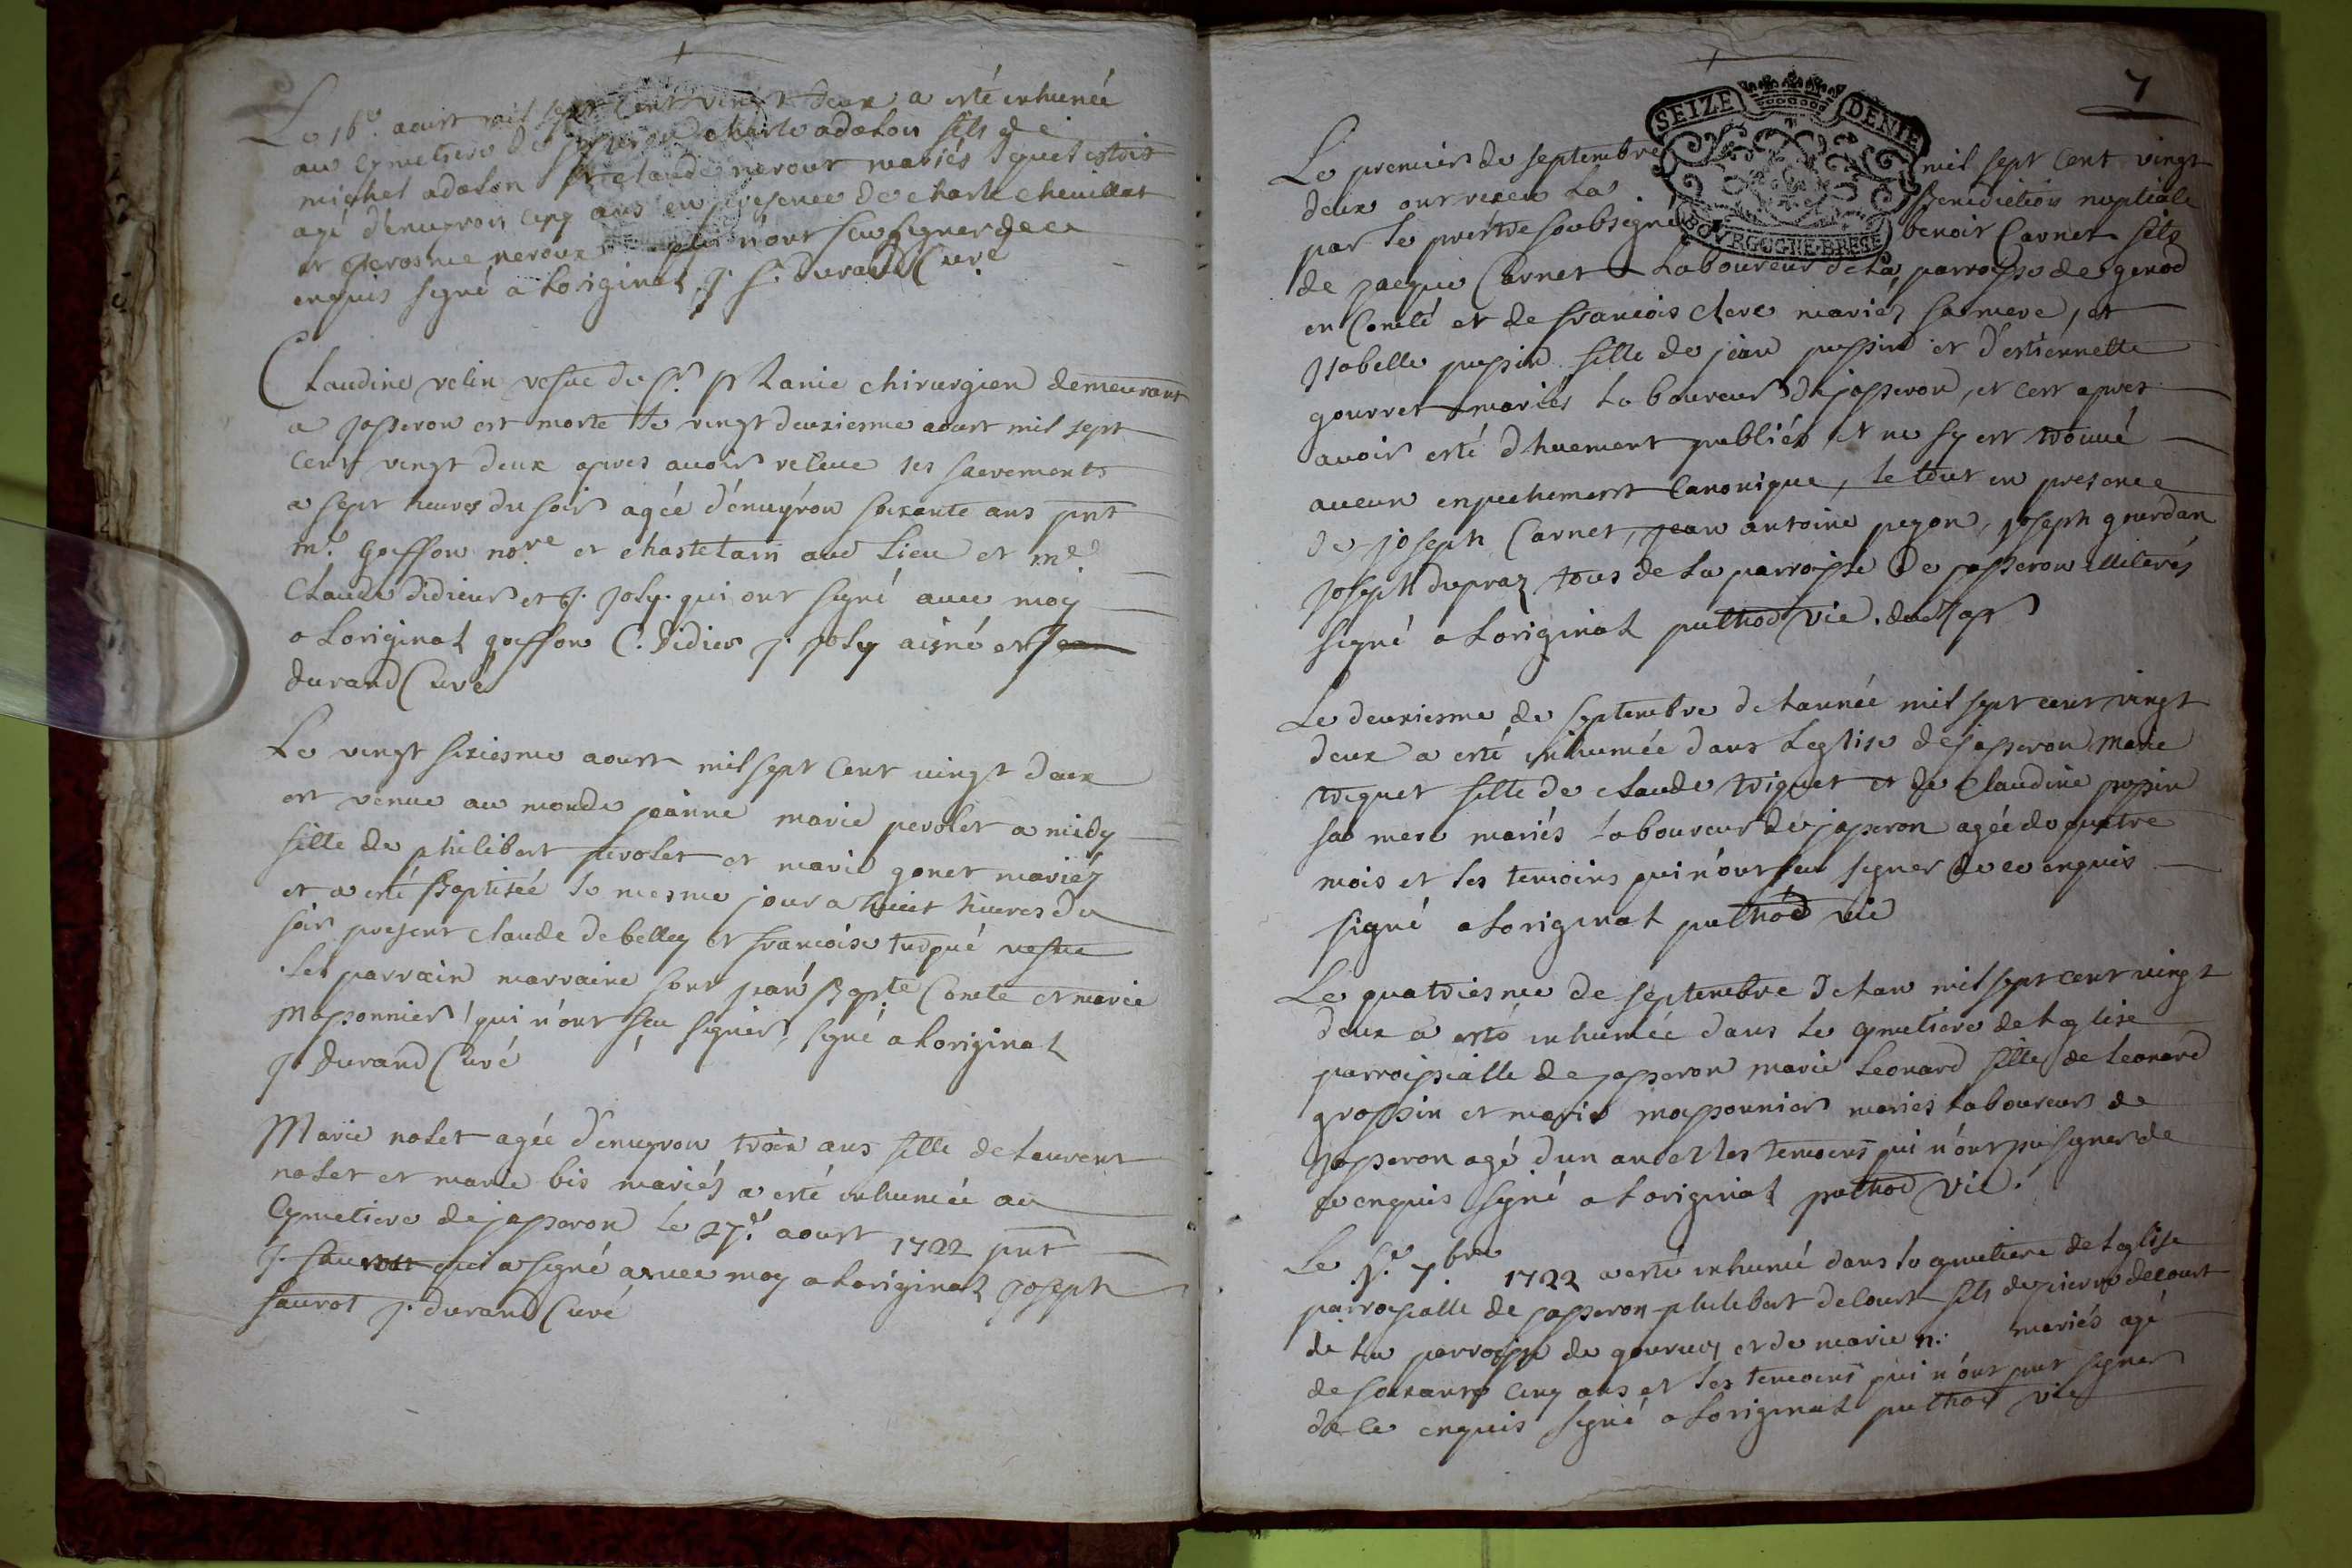 Le 16e. aoust mil sept Cent vingt deux a esté inhumée
au Cymetiere de Josseron charle adolon fils de
michel adolon et claude neroux mariés lequel estoit
agé d'enuyron cinq ans en presence de charle cheuillat
et Jerosme neroux qui n'ont sceu signer de ce
enquis signé a Loriginal J. f. durand Curé
Claudine velin vefue du Sr. planie chirurgien demeurant
a josseron est morte le vingt deuxiesme aoust mil sept
cent vingt deux apres auoir receue les sacrements
a sept heures du soir agée d'enuyron soixante ans pnt
me. goiffon nore. et chastelain aud Lieu et me.
Claude didier et J. Joly. qui ont signé auec moy
a Loriginal goiffon C. Didier J. Joly aisné et
durand Curé
Le vingt sixiesme aoust mil sept Cent vingt deux
est venue au monde jeanne marie perolet a midy
fille de philibert perolet et marie gonet mariés
et a esté Baptisée le mesme jour a huict heures du
soir present claude de belley et francoise vefue
Les parrain marraine sont jean Bapte. Comte et marie
Massonnier qui n'ont sceu signer, signé a Loriginal
J. durand Curé
Marie nolet agée d'enuyron trois ans fille de Laurent
nolet et marie bis mariés a esté inhumée au
Cymetiere de josseron le 27e. aoust 1722 pnt
J. saurot qui a signé auec moy a Loriginal joseph
saurot J. durand Curé
7
SEIZE DENIE
BOURGOGNE·BRESSE
Le premier de septembre mil sept Cent vingt
deux ont receu La Benediction nuptiale
par le prêtre soubsigné benoit Carnet fils
de jacque Carnet Laboureur de La parroisse de genod
en Comté et de francois clerc mariés sa mere, et
Isabelle pussin fille de jean pussin et d'estiennette
gourret mariés Laboureur de josseron, et cest apres
auoir esté dhuement publiés et ne sy est trouué
aucun enpechement Canonique, le tout en presence
de joseph Carnet, jean antoine pezon, joseph gourdan
joseph dupraz tous de La parroisse de josseron illiterés
signé a Loriginal puthod vic. dud jass
Le deuxiesme de septembre de Lannée mil sept cent vingt
deux a esté inhumée dans Leglise de josseron marie
triquet fille de claude triquet et de Claudine possin
sa mere mariés Laboureur de josseron agée de quatre
mois et les temoins qui n'ont sceu signer de ce enquis
signé a Loriginal puthod vic
Le quatriesme de septembre de Lan mil sept cent vingt
deux a esté inhumée dans le Cymetiere de Leglise
parroissialle de josseron marie Leonard fille de Leonard
grossin et marie massonnier mariés Laboureur de
josseron agé d'un an et les temoins qui n'ont pu signer de
ce enquis signé a Loriginal puthod vic.
Le 5e. 7bre. 1722 a esté inhumé dans le cymetiere de Leglise
parroissialle de josseron philebert delourt fils de pierre delourt
de La parroisse de gourrey et de marie n: mariés agé
de soixante cinq ans et les temoins qui n'ont peut signer
de ce enquis signé a Loriginal puthod vic